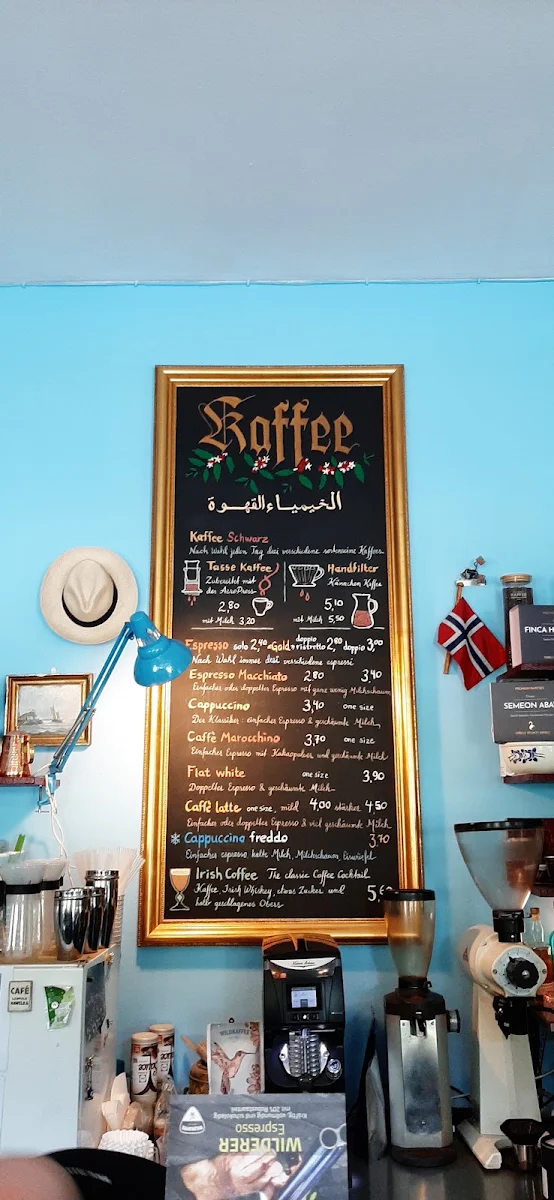 Kaffee
الخيمياء القهوة
Kaffee Schwarz
Nach Wahl jeden Tag drei verschiedene sortenreine Kaffees
Tasse Kaffee
Zubereitet mit
der AeroPress
2,80
mit Milch 3,20
Handfilter
Kännchen Kaffee
5,10
mit Milch 5,50
Espresso solo 2,40 Gold ristretto doppio 2,80 doppio 3,00
Nach Wahl immer drei verschiedene espressi
Espresso Macchiato 2,80 3,40
Einfacher oder doppelter Espresso mit ganz wenig Milchschaum
Cappuccino 3,40 one size
Der Klassiker: einfacher Espresso & geschäumte Milch
Caffè Marocchino 3,70 one size
Einfacher Espresso mit Kakaopulver und geschäumte Milch
Flat white one size 3,90
Doppelter Espresso & geschäumte Milch
Caffè latte one size, mild 4,00 stärker 4,50
Einfacher oder doppelter Espresso & viel geschäumte Milch
Cappuccino freddo 3,70
Einfacher espresso, kalte Milch, Milchschaum, Eiswürfel
Irish Coffee The classic Coffee Cocktail
Kaffee, Irish Whiskey, etwas Zucker und
halb geschlagenes Obers
FINCA
SEMEON ABA
CAFÉ
HAWELKA
WILDKAFFEE
WILDERER
Espresso
Kräftig, vollmundig und schokoladig
mit 20% Robustaanteil